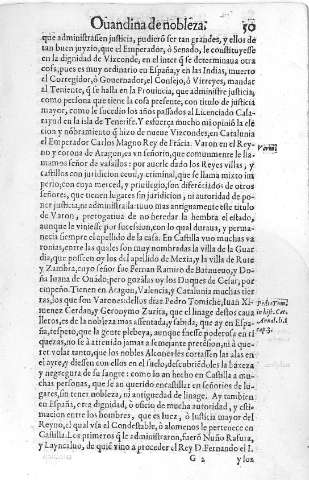 Ouandina de nobleza. 50
que administrassen justicia, pudierõ ser tan grandes, y ellos de
tan buen juyzio, que el Emperador, ò Senado, le constituyesse
en la dignidad de Vizconde, en el inter q̃ se determinaua otra
cosa, pues es muy ordinario en España, y en las Indias, muerto
el Corregidor, ò Gouernador, el Consejo, ò Virreyes, mandar
al Teniente, q̃ se halla en la Prouincia, que administre justicia,
como persona que tiene la cosa presente, con titulo de justicia
mayor, como le sucedio los años passados al Licenciado
en la isla de Tenerife. Y esfuerça mucho mi opinió la
ció y nõbramiento q̃ hizo de nueue Vizcondes, en Cataluña
el Emperador Carlos Magno Rey de Frãcia. Varon en el Rey-
no y corona de Aragon, es vn señorio, que comunmente le lla-
mamos señor de vasallos: por auerle dado los Reyes villas, y
castillos con juridicion ceuil, y criminal, que se llama mixto im
perio, con cuya merced, y priuilegio, son diferéciados de otros
señores, que tienen lugares sin juridicion, ni autoridad de po-
ner justicia, ni administralla: tuuo mas antiguamente este titulo
de Varon, prerogatiua de no heredar la hembra el estado,
aunque le viniesse por sucession, con lo qual duraua, y perma-
necia siempre el apellido de la casa. En Castilla vuo muchas va
ronias, entre las quales son muy nombradas la villa de la Guar
dia, que posseen oy los del apellido de Mexia, y la villa de Rute
y Zambra, cuyo señor fue Fernan Ramirez de y Do-
ña Ioana de pero gozalas oy los Duques de Cesar, por
empeño. Tienen en Aragon, Valencia, y Cataluña muchas tier
ras, los que son Varones: dellos dize Pedro Tomiche, Iuan Xi-
menez Cerdan, y Geronymo Zurita, que el linage destos caua
lleros, es de la nobleza mas assentada, y sabida, que ay en Espa-
ña, respeto, que la gente plebeya, aunque fuesse poderosa en ri
quezas, no se à atreuido jamas a semejante pretécion, ni à que-
rer volar tanto, que los nobles Alcones les cortassen las alas en
el ayre, y diessen con ellos en el suelo, descubriédoles la baxeza
y negregura de su sangre: como lo an hecho en Castilla a mu-
chas personas, que se an querido encastillar en señores de lu-
gares, sin tener nobleza, ni antiguedad de linage. Ay tambien
en España, otra dignidad, ò oficio de mucha autoridad, y esti-
macion entre los hombres, que es Iuez, ò Iusticia mayor del
Reyno, el qual vsa el Condestable, ò alomenos le pertenece en
Castilla. Los primeros q̃ le administraron, fuerõ Nuño Rasura,
y Layncaluo, de quié vino a proceder el Rey D. Fernando el I.
G 2 y los